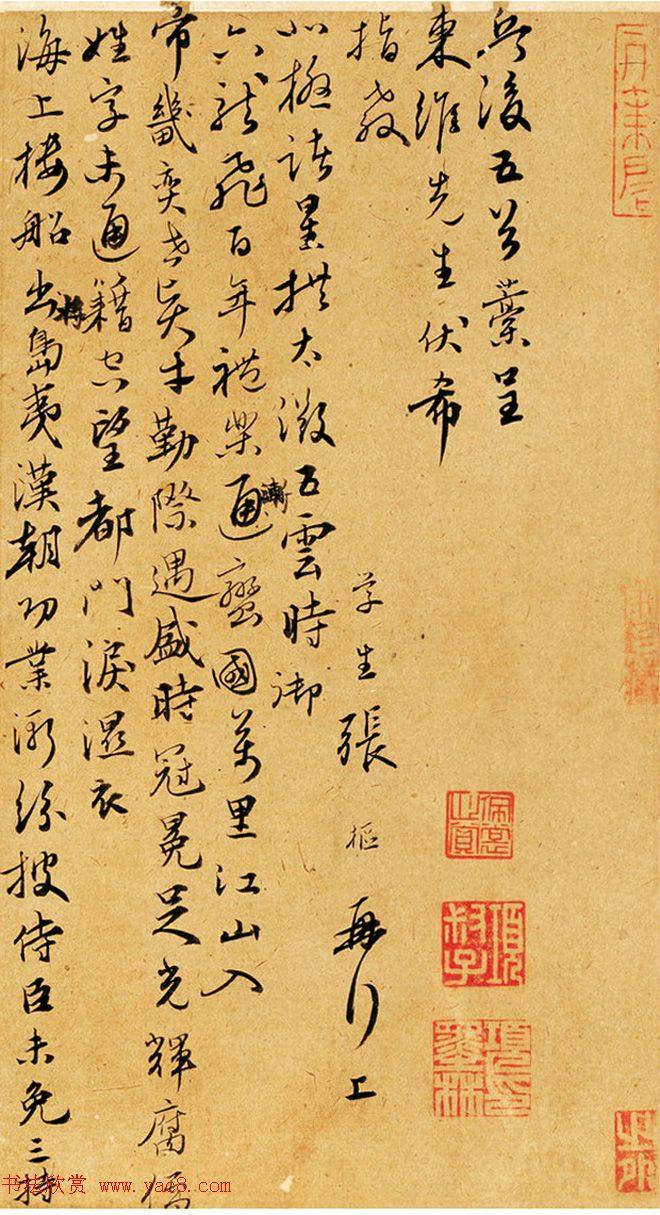 兵後五首藁呈
東維先生伏希
指教
学生張樞再拜上
北極諸星拱太微五雲時御
六龍飛百年禮樂通漸蠻國萬里江山入
帝畿奕世才勤際遇盛時冠冕足光輝腐儒
姓字未通籍空望都門淚濕衣
海上樓船出將島夷漢朝功業漸紛披侍臣未免三持
项叔子
书法欣赏 www.yac8.com